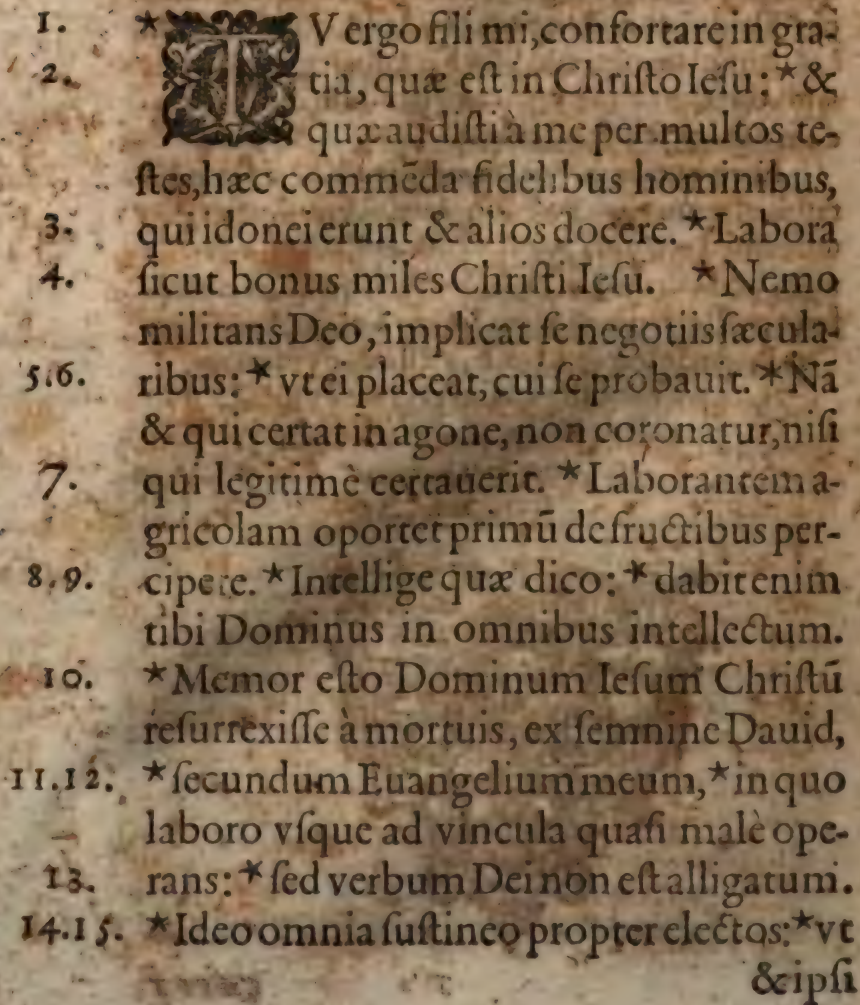 1. *TV ergo fili mi, confortare in gra-
2. tia, quæ eſt in Chriſto Ieſu; *&
quæ audiſti à me per multos te-
ſtes, hæc commēda fidelibus hominibus,
3. qui idonei erunt & alios docere. *Labora
4. ſicut bonus miles Chriſti Ieſu. *Nemo
militans Deo, implicat ſe negotiis ſæcula-
5.6. ribus: *vt ei placeat, cui ſe probauit. *Nā
& qui certat in agone, non coronatur, niſi
7. qui legitimè certauerit. *Laborantem a-
gricolam oportet primū de fructibus per-
8.9. cipere. *Intellige quæ dico: *dabit enim
tibi Dominus in omnibus intellectum.
10. *Memor eſto Dominum Ieſum Chriſtū
reſurrexiſſe à mortuis, ex ſemnine Dauid,
11.12. *ſecundum Euangelium meum, *in quo
laboro vſque ad vincula quaſi malè ope-
13. rans: *ſed verbum Dei non eſt alligatum.
14.15. *Ideo omnia ſuſtineo propter electos: *vt
& ipſi